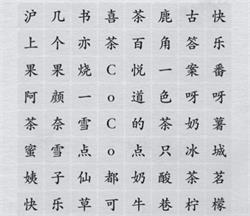 沪几书喜茶鹿古快
上个亦茶百角答乐
果果烧C悦一案番
阿颜一o道色呀呀
茶奈雪C的茶奶薯
蜜雪点o点只冰城
姨子仙都奶酸茶茗
快乐草可牛巷柠檬